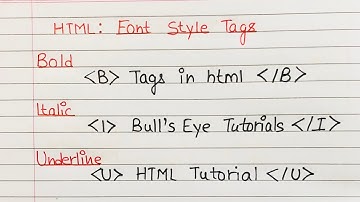 HTML: Font Style Tags
Bold
<B> Tags in html </B>
Italic
<I> Bull's Eye Tutorials </I>
Underline
<U> HTML Tutorial </U>